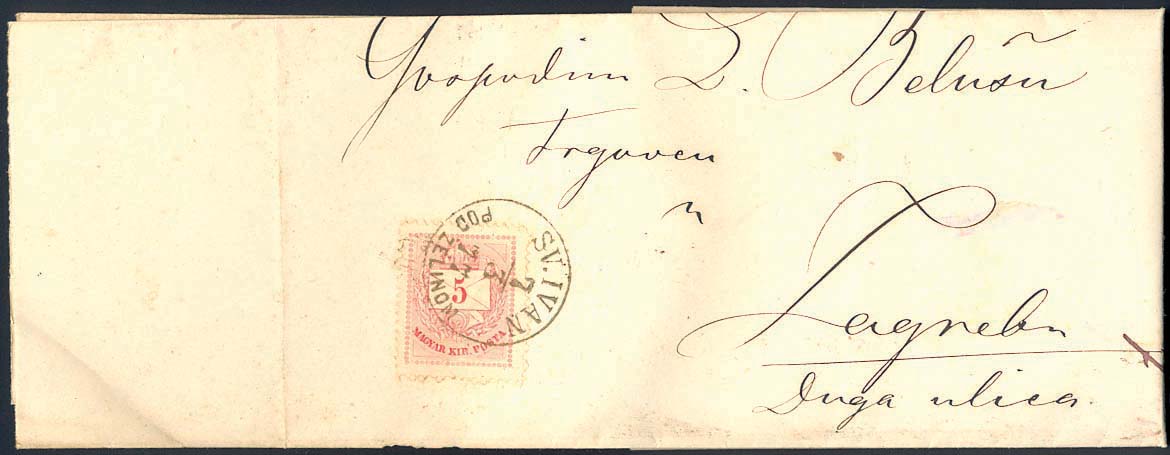 Gospodinu D. Belušu
Trgovcu
u
Zagrebu
Duga ulica
SV. IVAN
POD ZELINOM
7/3
5
MAGYAR KIR. POSTA